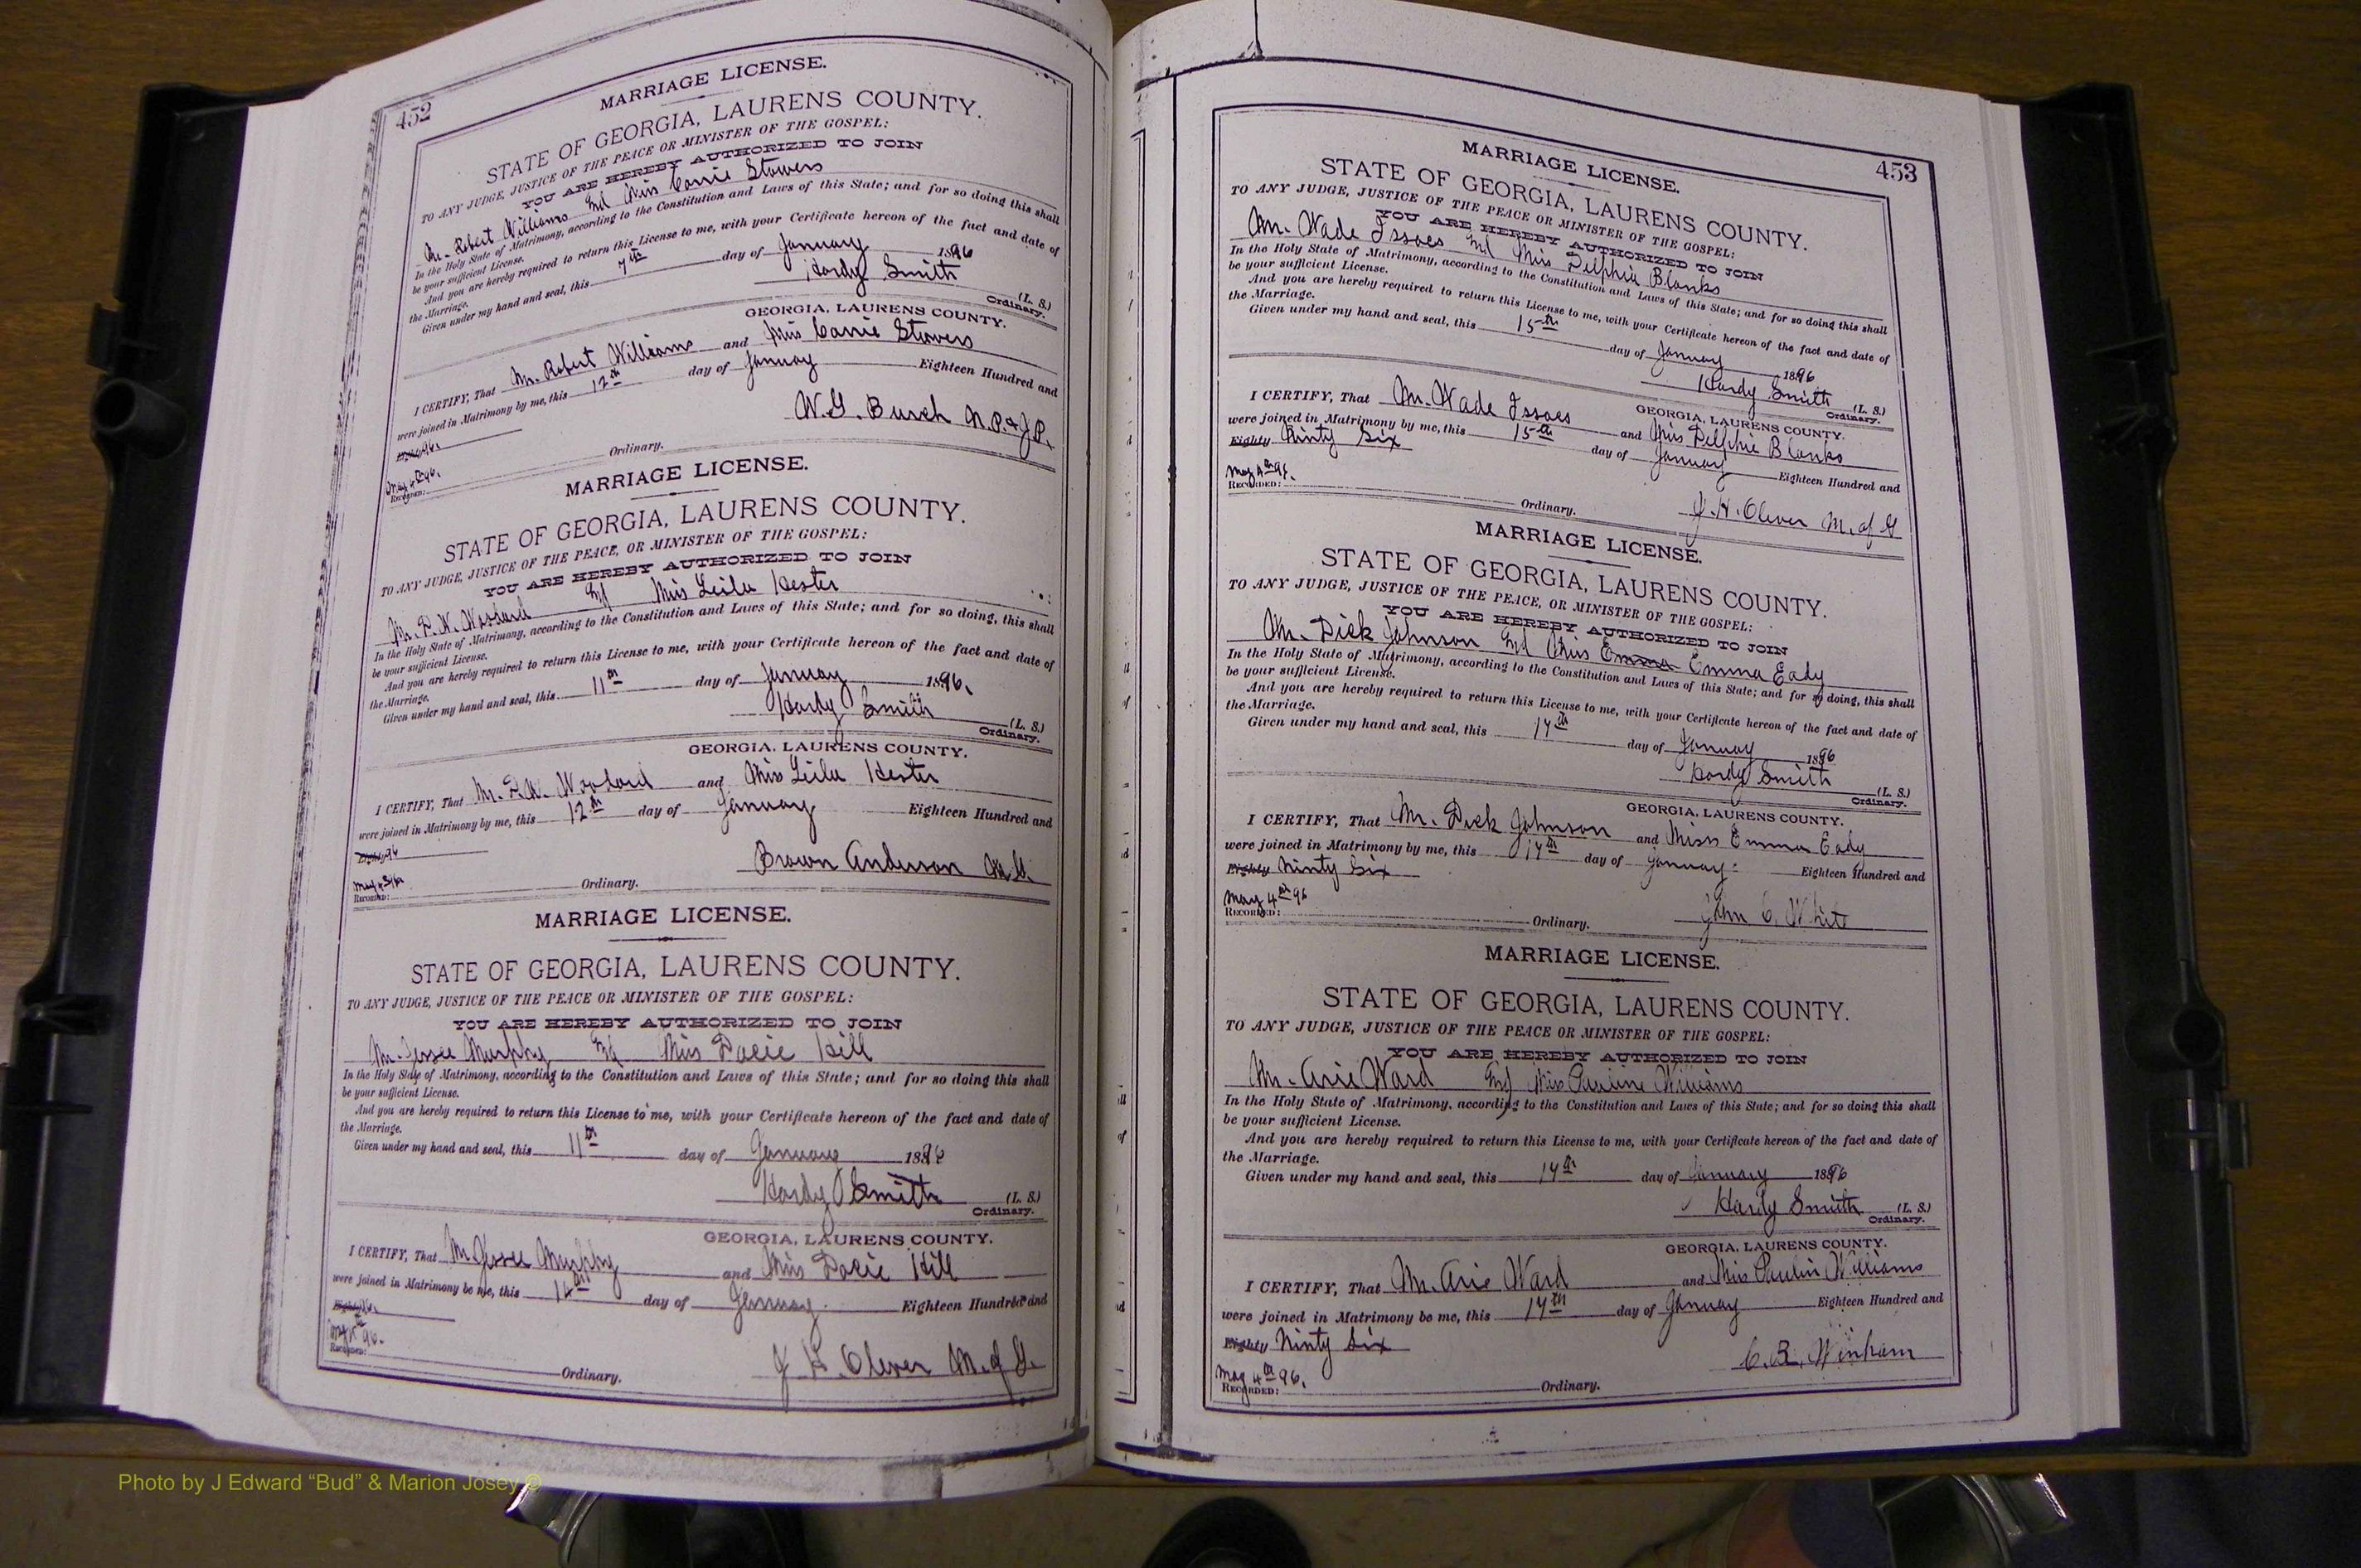 452
MARRIAGE LICENSE.
STATE OF GEORGIA, LAURENS COUNTY.
TO ANY JUDGE, JUSTICE OF THE PEACE OR MINISTER OF THE GOSPEL:
YOU ARE HEREBY AUTHORIZED TO JOIN
Mr. Robert Williams and Miss Carrie Stowers
In the Holy State of Matrimony, according to the Constitution and Laws of this State; and for so doing this shall
be your sufficient License.
And you are hereby required to return this License to me, with your Certificate hereon of the fact and date of
the Marriage.
Given under my hand and seal, this 7th day of January 1896
Hardy Smith (L. S.)
Ordinary.
GEORGIA, LAURENS COUNTY.
I CERTIFY, That Mr. Robert Williams and Miss Carrie Stowers
were joined in Matrimony by me, this 12th day of January Eighteen Hundred and
96.
W. G. Burch N.P. & J.P.
May 4th 96.
Recorded: Ordinary.
MARRIAGE LICENSE.
STATE OF GEORGIA, LAURENS COUNTY.
TO ANY JUDGE, JUSTICE OF THE PEACE, OR MINISTER OF THE GOSPEL:
YOU ARE HEREBY AUTHORIZED TO JOIN
Mr. and Miss Leila Hester
In the Holy State of Matrimony, according to the Constitution and Laws of this State; and for so doing, this shall
be your sufficient License.
And you are hereby required to return this License to me, with your Certificate hereon of the fact and date of
the Marriage.
Given under my hand and seal, this 11th day of January 1896.
Hardy Smith (L. S.)
Ordinary.
GEORGIA, LAURENS COUNTY.
I CERTIFY, That Mr. and Miss Leila Hester
were joined in Matrimony by me, this 12th day of January Eighteen Hundred and
96
Brown Anderson M.G.
Recorded: Ordinary.
MARRIAGE LICENSE.
STATE OF GEORGIA, LAURENS COUNTY.
TO ANY JUDGE, JUSTICE OF THE PEACE OR MINISTER OF THE GOSPEL:
YOU ARE HEREBY AUTHORIZED TO JOIN
Mr. Jessee Murphy and Miss Docie Hill
In the Holy State of Matrimony, according to the Constitution and Laws of this State; and for so doing this shall
be your sufficient License.
And you are hereby required to return this License to me, with your Certificate hereon of the fact and date of
the Marriage.
Given under my hand and seal, this 11th day of January 1896
Hardy Smith (L. S.)
Ordinary.
GEORGIA, LAURENS COUNTY.
I CERTIFY, That Mr Jessee Murphy and Miss Docie Hill
were joined in Matrimony be me, this day of January Eighteen Hundred and
Eighty 96.
J. H. Oliver M. of G.
96.
Recorded: Ordinary.
453
MARRIAGE LICENSE.
STATE OF GEORGIA, LAURENS COUNTY.
TO ANY JUDGE, JUSTICE OF THE PEACE OR MINISTER OF THE GOSPEL:
YOU ARE HEREBY AUTHORIZED TO JOIN
Mr. Wade Issaes and Miss Delphia Blanks
In the Holy State of Matrimony, according to the Constitution and Laws of this State; and for so doing this shall
be your sufficient License.
And you are hereby required to return this License to me, with your Certificate hereon of the fact and date of
the Marriage.
Given under my hand and seal, this 15th day of January 1896
Hardy Smith (L. S.)
Ordinary.
GEORGIA, LAURENS COUNTY.
I CERTIFY, That Mr. Wade Issaes and Miss Delphie Blanks
were joined in Matrimony by me, this 15th day of January Eighteen Hundred and
Eighty Ninty Six
J. H. Oliver M. of G
May 4th 96.
Recorded: Ordinary.
MARRIAGE LICENSE.
STATE OF GEORGIA, LAURENS COUNTY.
TO ANY JUDGE, JUSTICE OF THE PEACE, OR MINISTER OF THE GOSPEL:
YOU ARE HEREBY AUTHORIZED TO JOIN
Mr. Dick Johnson and Miss Emma Emma Eady
In the Holy State of Matrimony, according to the Constitution and Laws of this State; and for so doing, this shall
be your sufficient License.
And you are hereby required to return this License to me, with your Certificate hereon of the fact and date of
the Marriage.
Given under my hand and seal, this 14th day of January 1896
Hardy Smith (L. S.)
Ordinary.
GEORGIA, LAURENS COUNTY.
I CERTIFY, That Mr. Dick Johnson and Miss Emma Eady
were joined in Matrimony by me, this 14th day of January Eighteen Hundred and
Eighty Ninty Six
May 4th 96
John C. White
Recorded: Ordinary.
MARRIAGE LICENSE.
STATE OF GEORGIA, LAURENS COUNTY.
TO ANY JUDGE, JUSTICE OF THE PEACE OR MINISTER OF THE GOSPEL:
YOU ARE HEREBY AUTHORIZED TO JOIN
Mr. Arie Ward and Miss Pauline Williams
In the Holy State of Matrimony, according to the Constitution and Laws of this State; and for so doing this shall
be your sufficient License.
And you are hereby required to return this License to me, with your Certificate hereon of the fact and date of
the Marriage.
Given under my hand and seal, this 14th day of January 1896
Hardy Smith (L. S.)
Ordinary.
GEORGIA, LAURENS COUNTY.
I CERTIFY, That Mr. Arie Ward and Miss Paulin Williams
were joined in Matrimony be me, this 14th day of January Eighteen Hundred and
Eighty Ninty Six
C. B. Winham
May 4th 96.
Recorded: Ordinary.
Photo by J Edward “Bud” & Marion Josey ©